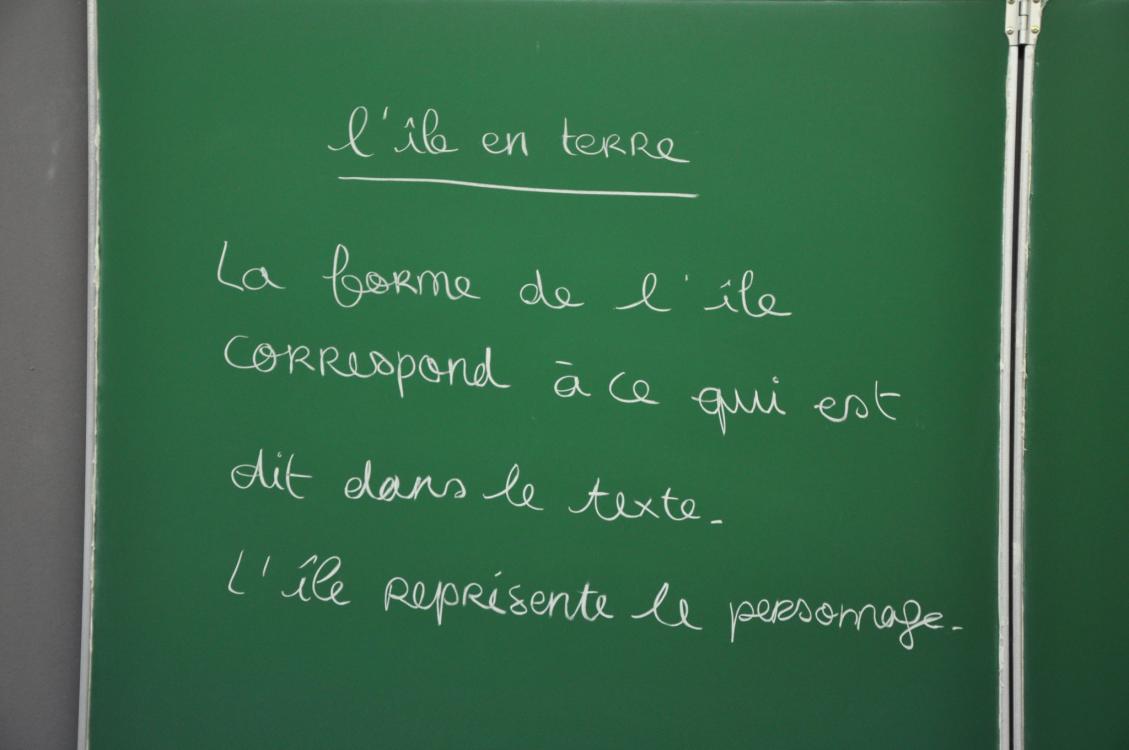 l'île en terre
La forme de l'île
correspond à ce qui est
dit dans le texte.
L'île représente le personnage.